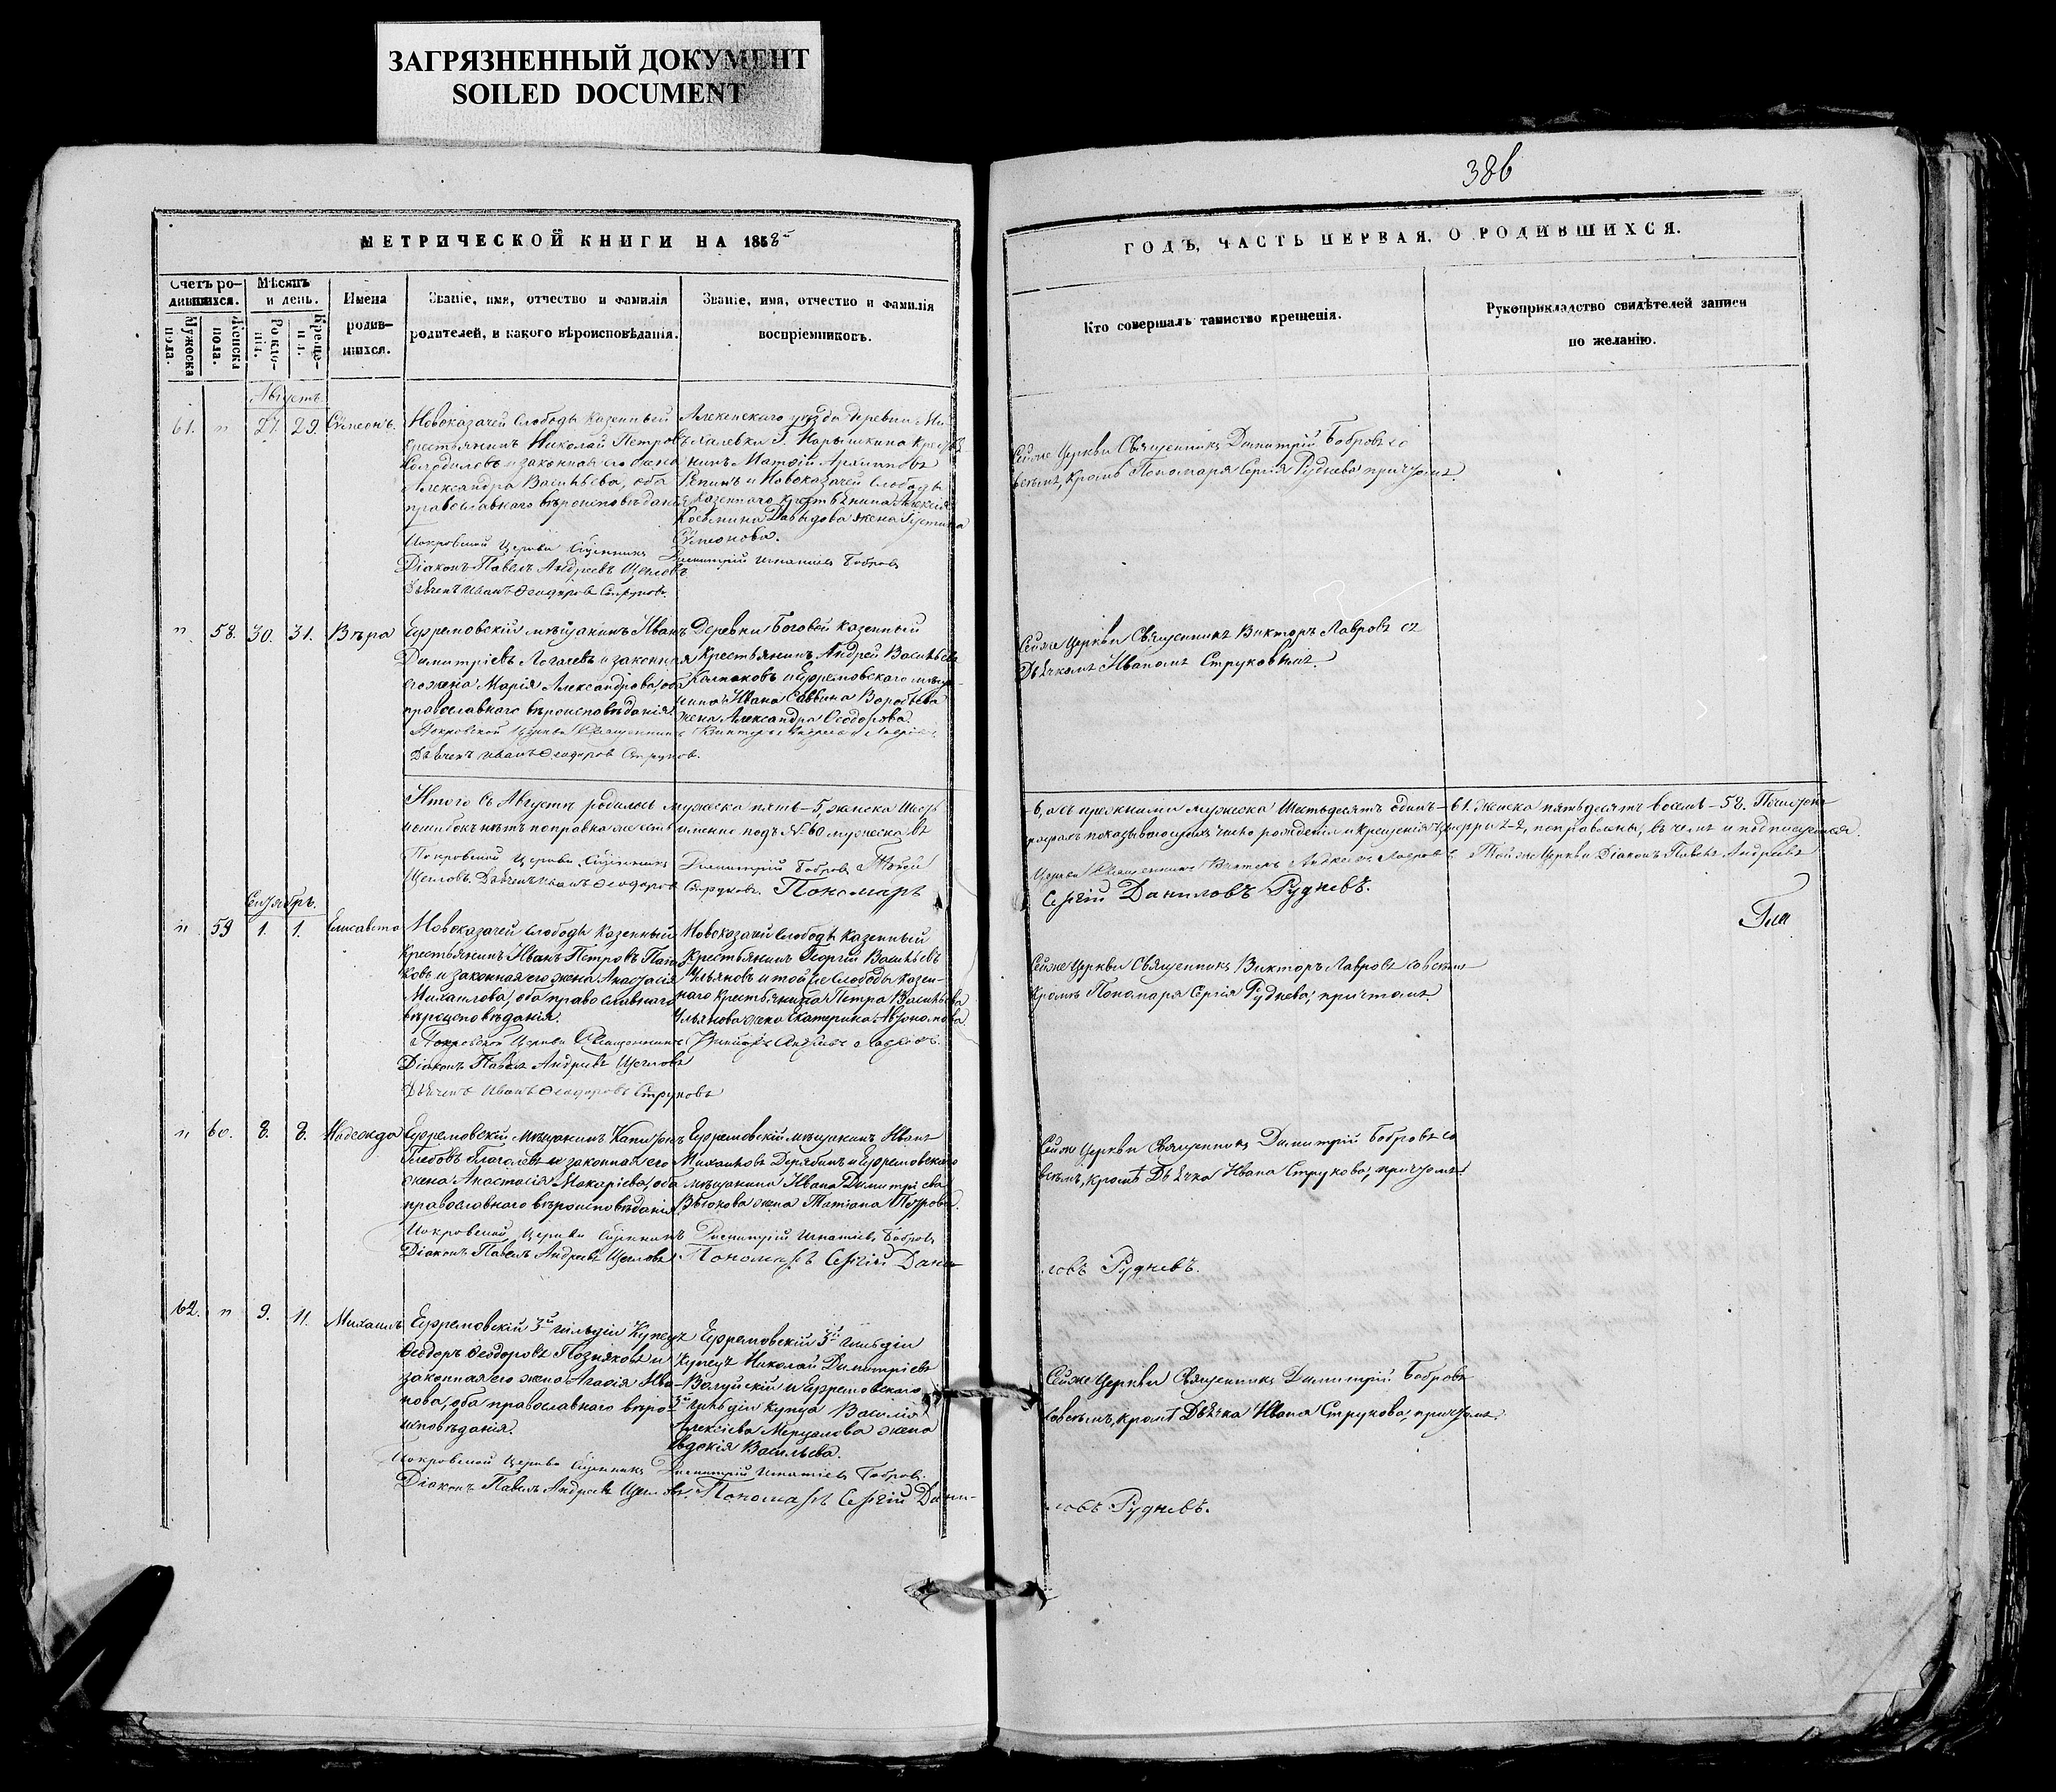 ЗАГРЯЗНЕННЫЙ ДОКУМЕНТ
SOILED DOCUMENT
386
МЕТРИЧЕСКОЙ КНИГИ НА 1858й
ГОДЪ, ЧАСТЬ ПЕРВАЯ, О РОДИВШИХСЯ.
Счетъ ро-
дившихся.
Мужеска пола.
Женска пола.
Мѣсяцъ
и день.
Рожде-
нія.
Креще-
нія.
Имена
родив-
шихся.
Званіе, имя, отчество и фамилія
родителей, и какого вѣроисповѣданія.
Званіе, имя, отчество и фамилія
воспріемниковъ.
Кто совершалъ таинство крещенія.
Рукоприкладство свидѣтелей записи
по желанію.
Августъ.
61. " 27. 29. Сѵмеонъ.
Новоказачей Слободы Казенный
крестьянинъ Николай Петровъ
и законная его жена
Александра Васильева, оба
православнаго вѣроисповѣданія
Алексинскаго уѣзда деревни
Нарышкина
Матѳій Архиповъ
Репинъ и Новоказачей Слободы
Казеннаго крестьянина Алексія
Косьмина Давыдова жена Іустина
Сѵмеонова.
Покровской Церкви Священникъ Димитрій Игнатіевъ Бобровъ
Діаконъ Павелъ Андреевъ Щегловъ
Дьячекъ Иванъ Ѳеодоровъ Струковъ.
Сейже Церкви Священникъ Димитрій Бобровъ со
всѣмъ, кромѣ Пономаря Сергія Руднева, причтомъ.
" 58. 30. 31. Вѣра
Ефремовскій мѣщанинъ Иванъ
Димитріевъ Логачевъ и законная
его жена Марія Александрова, оба
православнаго вѣроисповѣданія.
Деревни Боговой Казенный
Крестьянинъ Андрей Васильевъ
Колпаковъ и Ефремовскаго мѣща-
нина Ивана Саввина Воробьева
жена Александра Ѳеодорова.
Покровской Церкви Священникъ Викторъ Андреевъ Лавровъ.
Дьячекъ Иванъ Ѳеодоровъ Струковъ.
Сейже Церкви Священникъ Викторъ Лавровъ съ
Дьячкомъ Иваномъ Струковымъ.
Итого въ Августѣ родилось мужеска пять - 5, женска шесть
- 6, а съ прежними мужеска шестьдесятъ одинъ - 61. женска пятьдесятъ восемь - 58.
подъ № 60 мужеска въ
графахъ показывающихъ число рожденія и крещенія цыфры 2-2, поправлены, въ чемъ и подписуемся.
Покровской Церкви Священникъ Димитрій Бобровъ Тойже
Церкви Священникъ Викторъ Андреевъ Лавровъ. Тойже Церкви Діаконъ Павелъ Андреевъ
Щегловъ. Дьячекъ Иванъ Ѳеодоровъ Струковъ. Пономарь
Сергій Даниловъ Рудневъ.
Сентябрь.
" 59 1. 1. Елисавета
Новоказачей Слободы Казенный
крестьянинъ Иванъ Петровъ
и законная его жена Анастасія
Михаилова, оба православнаго
вѣроисповѣданія.
Новоказачей Слободы Казенный
Крестьянинъ Георгій Васильевъ
Ульяновъ и тойже Слободы Казен-
наго Крестьянина Петра Васильева
Ульянова жена Екатерина Автономова.
Покровской Церкви Священникъ Викторъ Андреевъ Лавровъ.
Діаконъ Павелъ Андреевъ Щегловъ
Дьячекъ Иванъ Ѳеодоровъ Струковъ
Сейже Церкви Священникъ Викторъ Лавровъ со всѣмъ
кромѣ Пономаря Сергія Руднева, причтомъ.
" 60. 8. 8. Надежда
Ефремовскій мѣщанинъ Капитонъ
Глебовъ и законная его
жена Анастасія Макаріева, оба
православнаго вѣроисповѣданія.
Ефремовскій мѣщанинъ Иванъ
Михаиловъ Дерябинъ и Ефремовскаго
мѣщанина Ивана Димитріева
жена Татіана Петрова.
Покровской Церкви Священникъ Димитрій Игнатіевъ Бобровъ
Діаконъ Павелъ Андреевъ Щегловъ. Пономарь Сергій Дани-
ловъ Рудневъ.
Сейже Церкви Священникъ Димитрій Бобровъ со
всѣмъ, кромѣ Дьячка Ивана Струкова, причтомъ.
62. " 9. 11. Михаилъ
Ефремовскій 3й гильдіи Купецъ
Ѳеодоръ Ѳеодоровъ Позняковъ и
законная его жена Агаѳія Ива-
нова, оба православнаго вѣро-
исповѣданія.
Ефремовскій 3й гильдіи
Купецъ Николай Димитріевъ
Валуйскій и Ефремовскаго
3й гильдіи Купца Василія
Алексіева Мерцалова жена
Евдокія Васильева.
Покровской Церкви Священникъ Димитрій Игнатіевъ Бобровъ.
Діаконъ Павелъ Андреевъ Щегловъ. Пономарь Сергій Дани-
ловъ Рудневъ.
Сейже Церкви Священникъ Димитрій Бобровъ
со всѣмъ, кромѣ Дьячка Ивана Струкова, причтомъ.